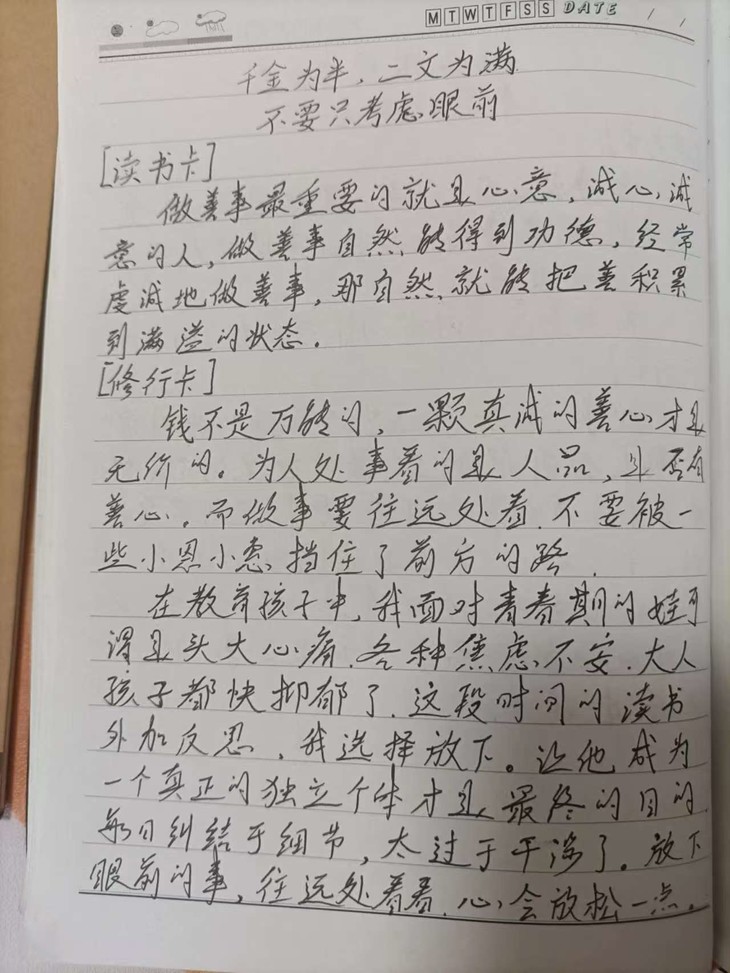 MTWTFSS DATE / /
千金为半，二文为满
不要只考虑眼前
[读书卡]
做善事最重要的就是心意，诚心诚
意的人，做善事自然能得到功德，经常
虔诚地做善事，那自然就能把善积累
到满溢的状态。
[修行卡]
钱不是万能的，一颗真诚的善心才是
无价的。为人处事看的是人品，是否有
善心。而做事要往远处看，不要被一
些小恩小惠挡住了前方的路。
在教育孩子中，我面对青春期的娃可
谓是头大心痛，各种焦虑不安，大人
孩子都快抑郁了。这段时间的读书
外加反思，我选择放下。让他成为
一个真正的独立个体才是最终的目的，
每日纠结于细节，太过于干涉了。放下
眼前的事，往远处看看，心会放松一点。